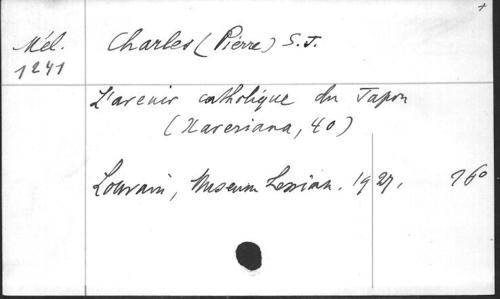 Mél.
1241
Charles (Pierre) S.J.
L'avenir catholique du Japon
(Xaveriana, 40)
Louvain, Museum Lessian. 1927. 16°